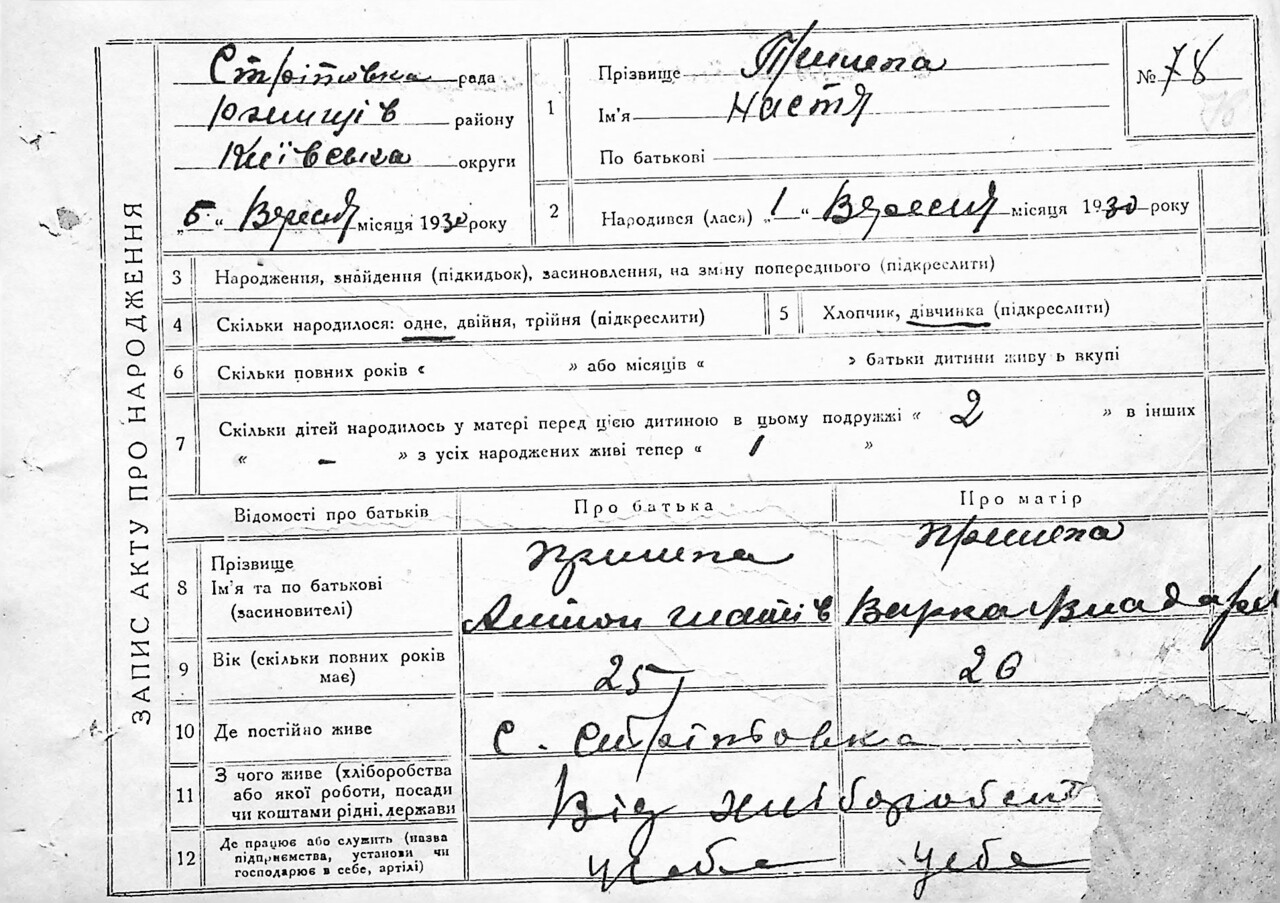 ЗАПИС АКТУ ПРО НАРОДЖЕННЯ
Стрітовка рада
району
Київська округи
„5“ Вересня місяця 1930 року
1 Прізвище Пришепа
Ім'я Настя
По батькові
№ 78
2 Народився (лася) „1“ Вересня місяця 1930 року
3 Народження, знайдення (підкидьок), засиновлення, на зміну попереднього (підкреслити)
4 Скільки народилося: одне, двійня, трійня (підкреслити)
5 Хлопчик, дівчинка (підкреслити)
6 Скільки повних років « » або місяців « » батьки дитини живу ь вкупі
7 Скільки дітей народилось у матері перед цією дитиною в цьому подружжі « 2 » в інших
« – » з усіх народжених живі тепер « 1 »
Відомості про батьків Про батька Про матір
8 Прізвище Пришепа Пришепа
Ім'я та по батькові
(засиновителі) Антон Варка
9 Вік (скільки повних років
має) 25 26
10 Де постійно живе С. Стрітовка
11 З чого живе (хліборобства
або якої роботи, посади
чи коштами рідні, держави Від хліборобст
12 Де працює або служить (назва
підприємства, установи чи
господарює в себе, артілі) у себе у себе